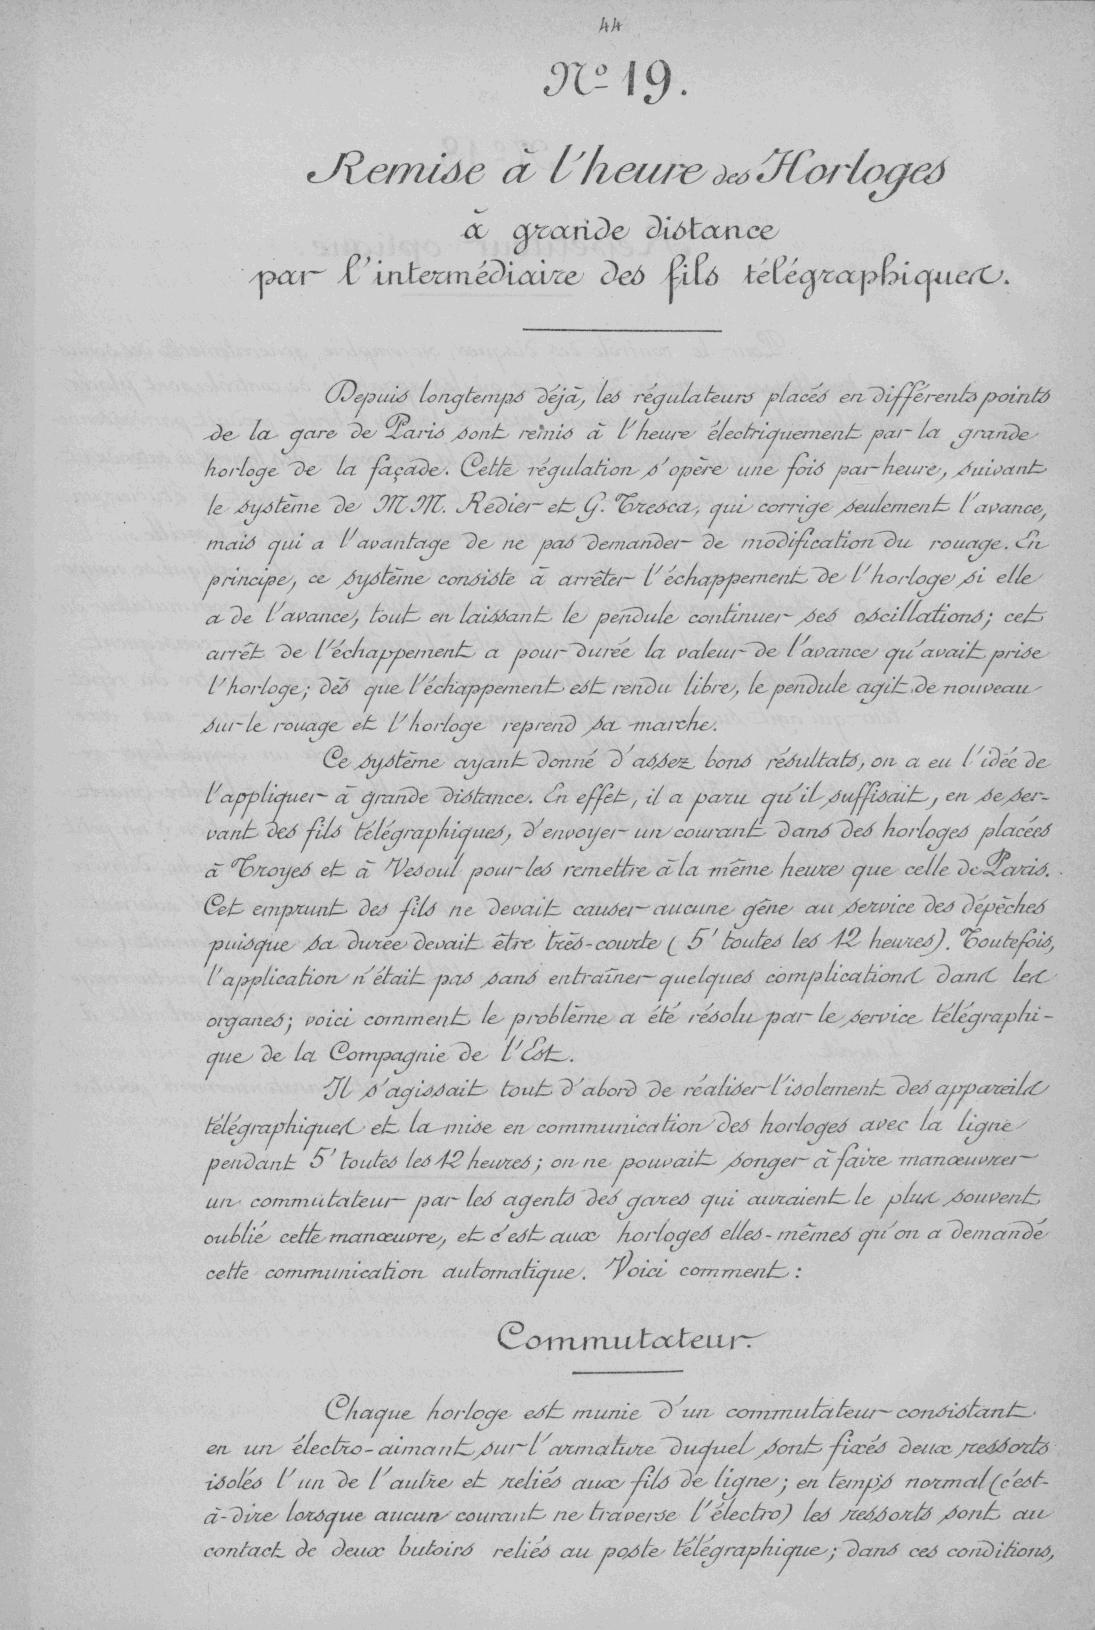 44
Nº 19.
Remise à l'heure des Horloges
à grande distance
par l'intermédiaire des fils télégraphiques.
Depuis longtemps déjà, les régulateurs placés en différents points
de la gare de Paris sont remis à l'heure électriquement par la grande
horloge de la façade. Cette régulation s'opère une fois par heure, suivant
le système de M.M. Redier et G. Tresca, qui corrige seulement l'avance,
mais qui a l'avantage de ne pas demander de modification du rouage. En
principe, ce système consiste à arrêter l'échappement de l'horloge si elle
a de l'avance, tout en laissant le pendule continuer ses oscillations; cet
arrêt de l'échappement a pour durée la valeur de l'avance qu'avait prise
l'horloge; dès que l'échappement est rendu libre, le pendule agit de nouveau
sur le rouage et l'horloge reprend sa marche.
Ce système ayant donné d'assez bons résultats, on a eu l'idée de
l'appliquer à grande distance. En effet, il a paru qu'il suffisait, en se ser-
vant des fils télégraphiques, d'envoyer un courant dans des horloges placées
à Troyes et à Vesoul pour les remettre à la même heure que celle de Paris.
Cet emprunt des fils ne devait causer aucune gêne au service des dépêches
puisque sa durée devait être très-courte (5' toutes les 12 heures). Toutefois,
l'application n'était pas sans entraîner quelques complications dans les
organes; voici comment le problème a été résolu par le service télégraphi-
que de la Compagnie de l'Est.
Il s'agissait tout d'abord de réaliser l'isolement des appareils
télégraphiques et la mise en communication des horloges avec la ligne
pendant 5' toutes les 12 heures; on ne pouvait songer à faire manœuvrer
un commutateur par les agents des gares qui auraient le plus souvent
oublié cette manœuvre, et c'est aux horloges elles-mêmes qu'on a demandé
cette communication automatique. Voici comment:
Commutateur.
Chaque horloge est munie d'un commutateur consistant
en un électro-aimant sur l'armature duquel sont fixés deux ressorts
isolés l'un de l'autre et reliés aux fils de ligne; en temps normal (c'est-
à-dire lorsque aucun courant ne traverse l'électro) les ressorts sont au
contact de deux butoirs reliés au poste télégraphique; dans ces conditions,